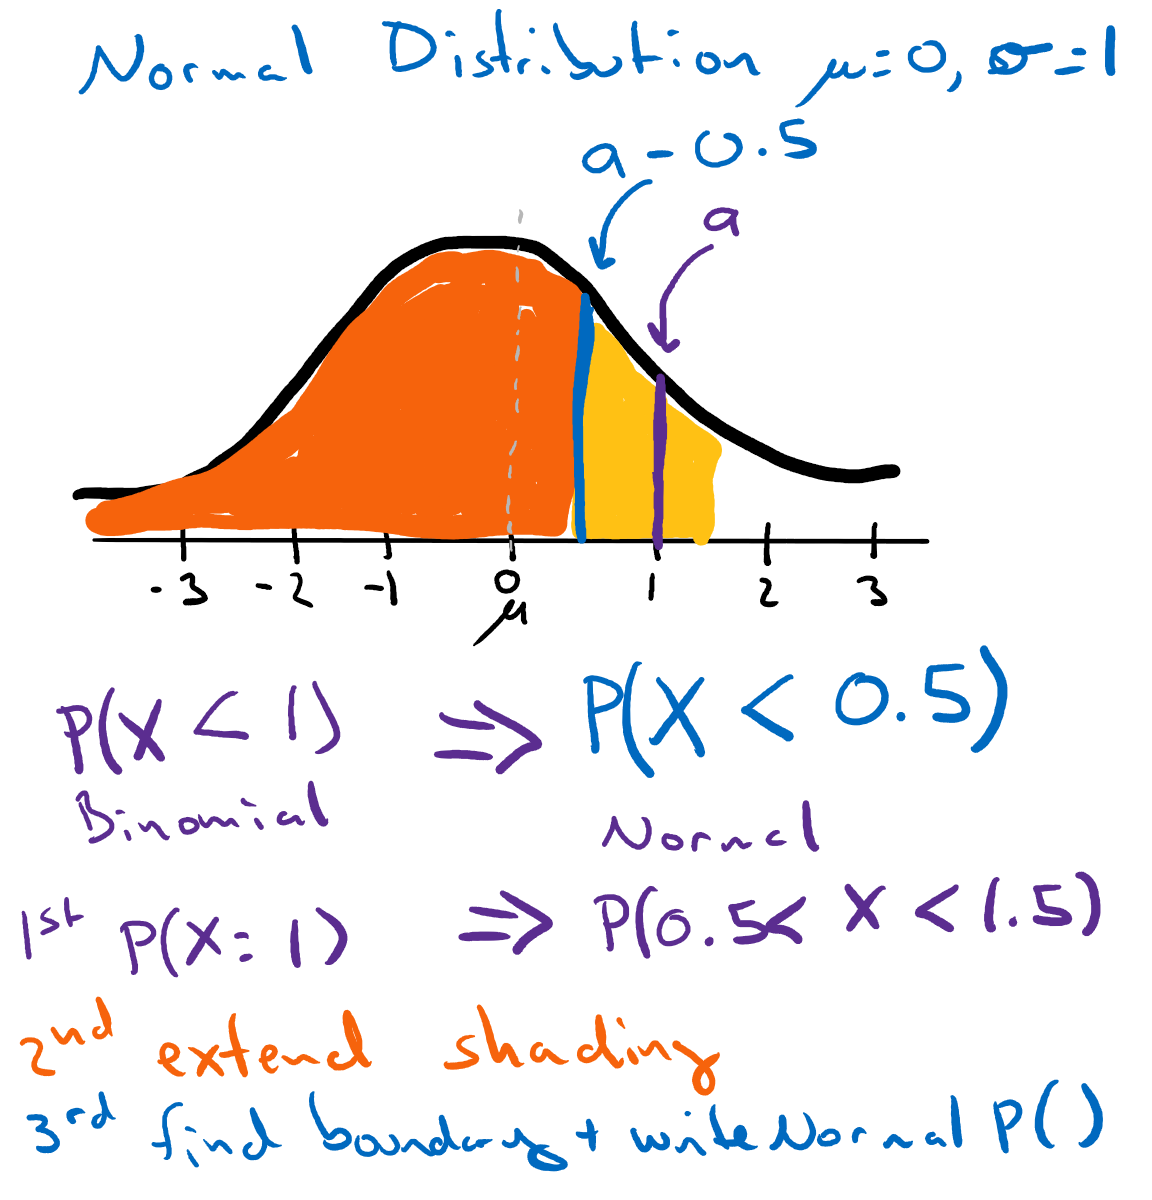 Normal Distribution μ=0, σ=1
a - 0.5
a
-3 -2 -1 0 1 2 3
μ
P(X < 1) ⇒ P(X < 0.5)
Binomial Normal
1st P(X = 1) ⇒ P(0.5 < X < 1.5)
2nd extend shading
3rd find boundary + write Normal P( )